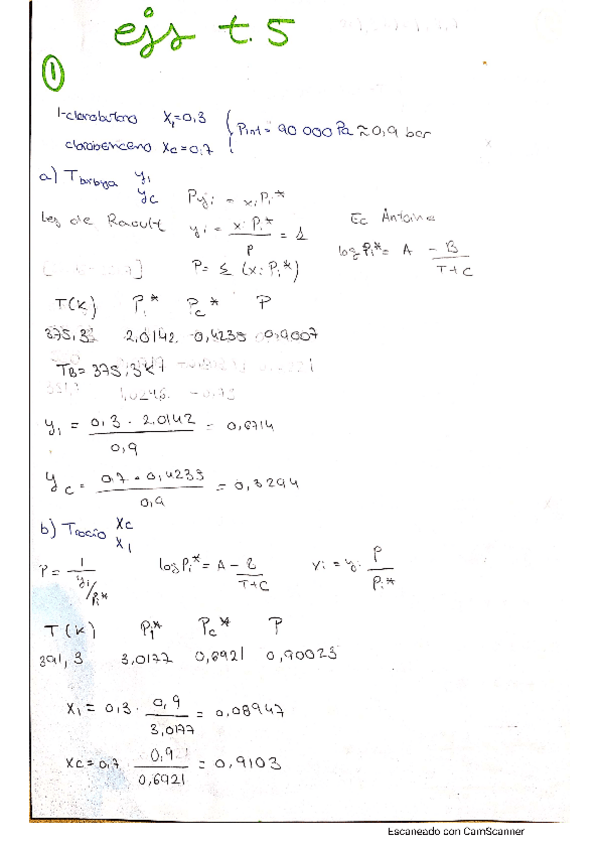 ejs t.5
①
1-clorobutano X₁=0,3 { Pint = 90 000 Pa ≈ 0,9 bar
clorobenceno Xc=0,7
a) Tburbuja y₁
yc
Pyᵢ = xᵢPᵢ*
Ley de Raoult yᵢ = xᵢ Pᵢ* / P = 1
Ec Antoine
P = Σ (xᵢ Pᵢ*)
log Pᵢ* = A - B / T+C
T(K) P₁* Pc* P
375,3 2,0142 0,4235 0,9007
TB = 375,3 K
y₁ = 0,3 · 2,0142 / 0,9 = 0,6714
yc = 0,7 · 0,4235 / 0,9 = 0,3294
b) Trocío Xc
X₁
P = 1 / yᵢ/Pᵢ* log Pᵢ* = A - B / T+C xᵢ = yᵢ P / Pᵢ*
T(K) P₁* Pc* P
391,3 3,0177 0,6921 0,90023
X₁ = 0,3 · 0,9 / 3,0177 = 0,08947
Xc = 0,7 · 0,9 / 0,6921 = 0,9103
Escaneado con CamScanner